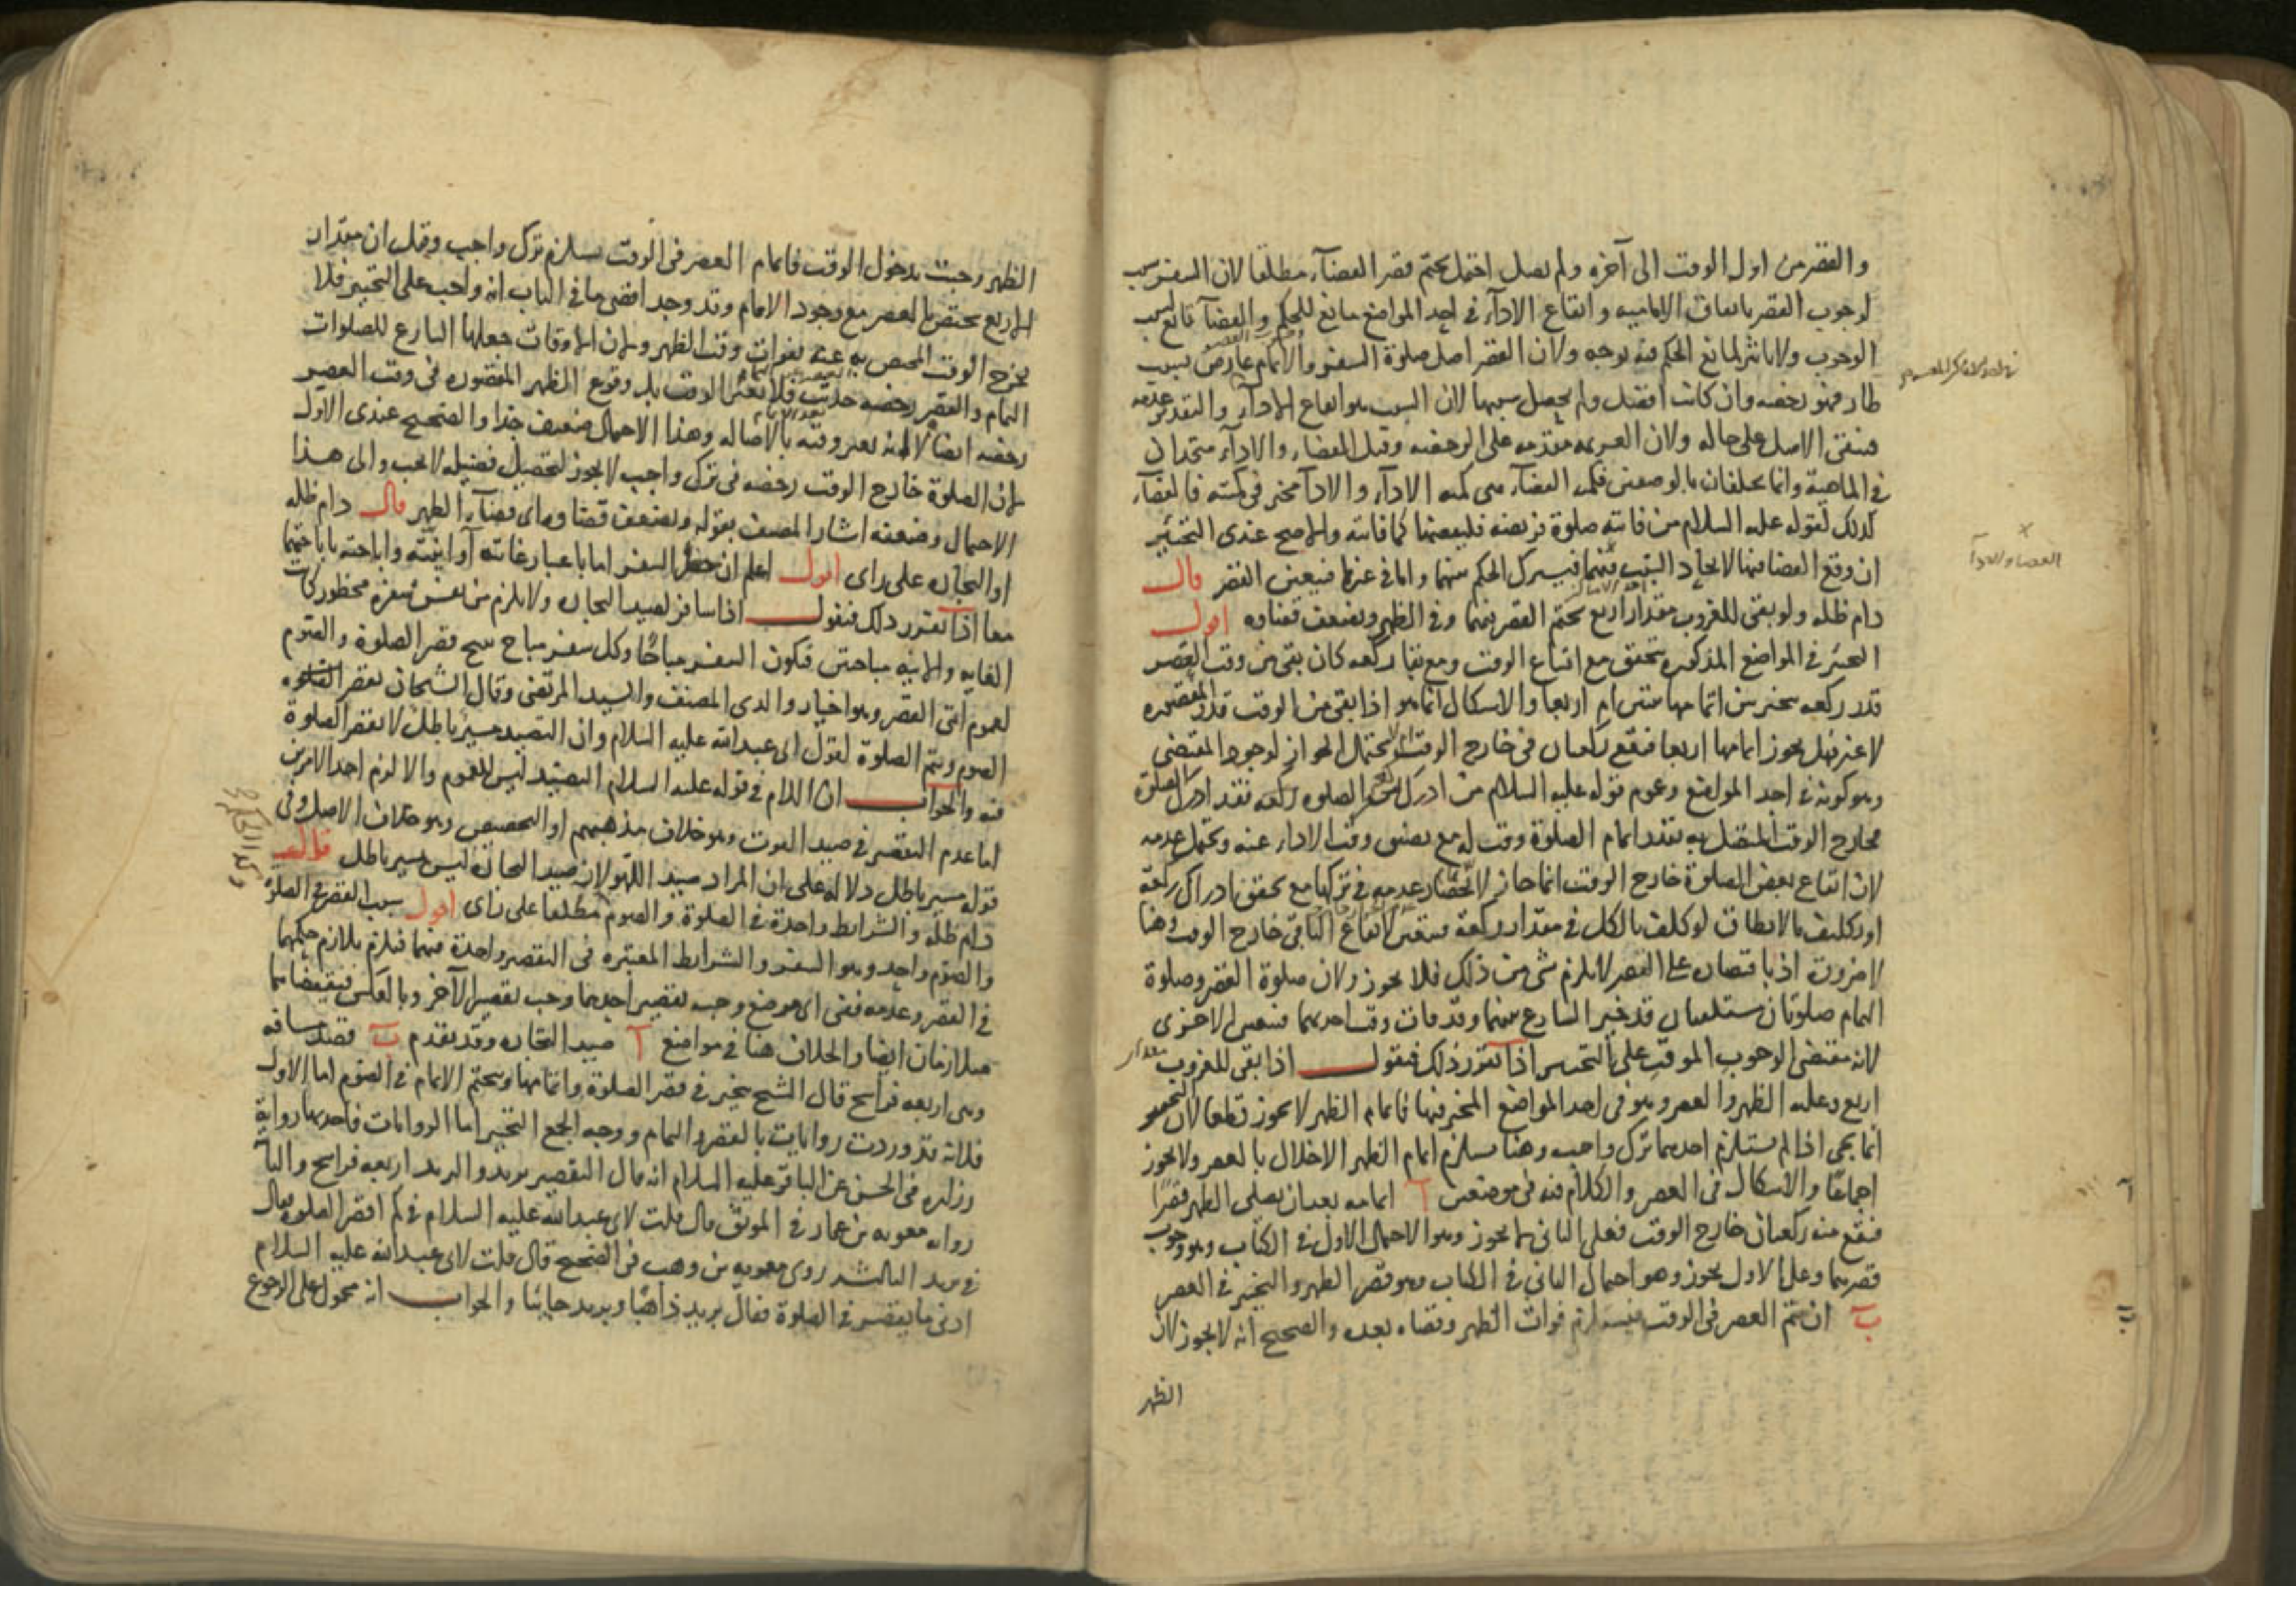 والقصر من اول الوقت الى آخره ولم يصل احتمل تحتم قصر القضآء مطلقا لان السفر سبب
لوجوب القصر باتفاق الامامية وايقاع الادآء في احد المواضع مانع للحكم والقضآ تابع لسبب
الوجوب ولا تاثير لمانع الحكم فيه بوجه ولان القصر اصل صلوة السفر والاتمام عارض بسبب
طار فهو رخصه وان كانت افضل ولم يحصل سببها لان السبب هو ايقاع الادآء والتقدير عدمه
فيبقى الاصل على حاله ولان العزيمه مقدمه على الرخصه وقيل القضاء والادآء متحدان
في الماهية وانما يختلفان بالوصفين فكميه القضآء هي كميه الادآء والادآ مخير في كميته فالقضآء
كذلك لقوله عليه السلام من فاتته صلوة فريضه فليقضها كما فاتته والاصح عندى التخيير
ان وقع القضا فيها لاتحاد السبب فيهما فيشترك الحكم بينهما واما في غيرها فيتعين القصر قال
دام ظله ولو بقى للغروب مقدار اربع تحتم القصر فيهما وفي الظهر ويضعف قضاوه اقول
التخيير في المواضع المذكوره يتحقق مع اتساع الوقت ومع بقا ركعه كان بقى من وقت العصر
قدر ركعه يتخير بين اتمامها مثنى ام اربعا والاشكال انما هو اذا بقى من الوقت قدر المقصوره
لا غير فهل يجوز اتمامها اربعا فتقع ركعتان في خارج الوقت يحتمل الجواز لوجود المقتضى
وهو كونه في احد المواضع وعموم قوله عليه السلام من ادرك من الصلوه ركعه فقد ادرك الصلوة
فخارج الوقت المتصل به بقدر اتمام الصلوة وقت له مع مضى وقت الاداء عنه ويحتمل عدمه
لان ايقاع بعض الصلوة خارج الوقت انما جاز لانحصار عدمه في تركها مع تحقق ادراك ركعة
او تكليف ما لا يطاق لو كلف بالكل في مقدار ركعة فيتعين لايقاع الباقي خارج الوقت وهنا
لا ضرورة اذ باقتصاره على القصر لا يلزم شى من ذلك فلا يجوز ولان صلوة القصر وصلوة
التمام صلوتان مستقلتان قد خير الشارع بينهما وقد فات وقت احديهما فتتعين الاخرى
لانه مقتضى الوجوب الموقت على التخيير اذا تقرر ذلك فنقول اذا بقى للغروب مقدار
اربع وعليه الظهر والعصر وهو في احد المواضع المخير فيها فاتمام الظهر لا يجوز قطعا لان التخيير
انما يجى اذا لم يستلزم احدهما ترك واجب وهنا يستلزم اتمام الظهر الاخلال بالعصر ولا يجوز
اجماعا والاشكال في العصر والكلام فيه في موضعين آ اتمامه بعد ان يصلى الظهر قصرا
فتقع منه ركعتان خارج الوقت فعلى الثاني لا يجوز وهو الاحتمال الاول في الكتاب وهو وجوب
قصرهما وعلى الاول يجوز وهو احتمال الثاني في الكتاب وهو قصر الظهر والتخيير في العصر
ب ان يتم العصر في الوقت فيستلزم فوات الظهر وقضاه بعده والصحيح انه لا يجوز لان
الظهر
القضا والادآ
الظهر وجبت بدخول الوقت فاتمام العصر في الوقت يستلزم ترك واجب وقيل ان مقدار
الاربع يختص بالعصر مع وجود الاتمام وقد وجد اقصى ما في الباب انه واجب على التخيير فلا
يخرج الوقت المختص به عنه بفوات وقت الظهر ولان الاوقات جعلها الشارع للصلوات
التمام والقصر رخصه حدثت فلا تغير الوقت بل وقوع الظهر المقصوره في وقت العصر
رخصه ايضا لانه تعين وقته بالاصاله وهذا الاحتمال ضعيف جدا والصحيح عندى الاول
لان الصلوة خارج الوقت رخصه في ترك واجب لا يجوز لتحصيل فضيله لا تجب والى هذا
الاحتمال وضعفه اشار المصنف بقوله ويضعف قضاوه اى قضآء الظهر قال دام ظله
او التجاره على راى اقول اعلم ان حظر السفر اما باعتبار غايته او اينيته واباحته باباحتهما
معا اذا تقرر ذلك فنقول اذا سافر لصيد التجاره ولا يلزم من نفس سفره محظور كانت
الغايه والاينيه مباحتين فيكون السفر مباحًا وكل سفر مباح يبيح قصر الصلوة والصوم
لعموم آيتى القصر وهو اختيار والدى المصنف والسيد المرتضى وقال الشيخان يقصر
الصوم ويتم الصلوة لقول ابى عبد الله عليه السلام وان التصيد مسير باطل لا تقصر الصلوة
فيه والجواب ان اللام في قوله عليه السلام التصيد ليس للعموم والا لزم احد الامرين
اما عدم التقصير في صيد القوت وهو خلاف مذهبهم او التخصيص وهو خلاف الاصل وفي
قوله مسير باطل دلالة على ان المراد صيد اللهو لان صيد التجارة ليس مسير باطل قال
دام ظله والشرايط واحدة في الصلوة والصوم مطلقا على راى اقول سبب القصر في الصلوة
والصوم واحد وهو السفر والشرايط المعتبره في التقصير واحدة فيهما فيلزم تلازم حكمهما
في القصر وعدمه ففى اى موضع وجب تقصير احدهما وجب تقصير الآخر وبالعكس فنقيضاهما
متلازمان ايضا والخلاف هنا في مواضع آ صيد التجاره وقد تقدم ب قصد مسافه
وهى اربعه فراسخ قال الشيخ يتخير في قصر الصلوة واتمامها ويتحتم الاتمام في الصوم اما الاول
فلانه قد وردت روايات بالقصر والتمام ووجه الجمع التخيير اما الروايات فاحديها رواية
زراره في الحسن عن الباقر عليه السلام انه قال التقصير بريد والبريد اربعه فراسخ
رواه معويه بن عمار في الموثق قال قلت لابى عبد الله عليه السلام في كم اقصر الصلوة فقال
في بريد الثالثه روى معويه بن وهب في الصحيح قال قلت لابى عبد الله عليه السلام
ادنى ما يقصر في الصلوة فقال بريد ذاهبًا وبريد جائيًا والجواب انه محمول على الرجوع